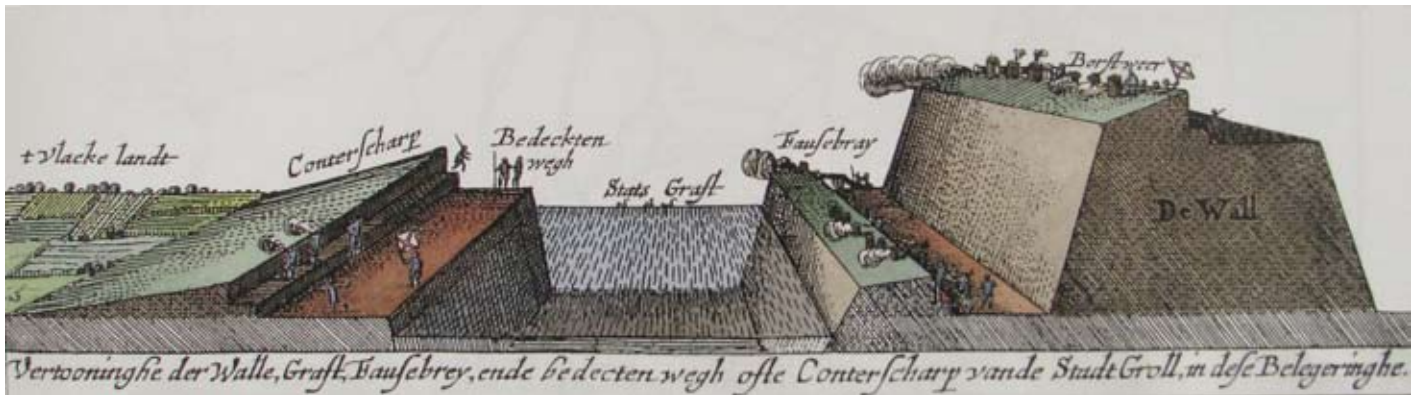 t vlacke landt
Conterscharp
Bedeckten
wegh
Stats Graft
Fausebray
Borstweer
De Wall
Vertooninghe der Walle, Graft, Fausebrey, ende bedecten wegh ofte Conterscharp vande Stadt Groll, in dese Belegeringhe.